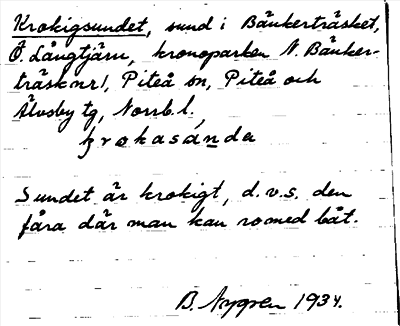 Krokigsundet, sund i Bänkerträsket,
Ö. Långtjärn, kronoparken N. Bänker-
träsk nr 1, Piteå sn, Piteå och
Älvsby tg, Norrb. l.
krokasánda
Sundet är krokigt, d.v.s. den
fåra där man kan ro med båt.
B. Nygren 1934.